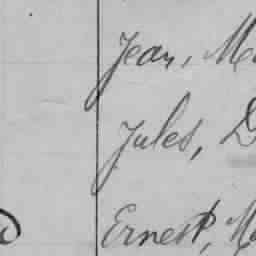 Jean, M
Jules, D
Ernest, M